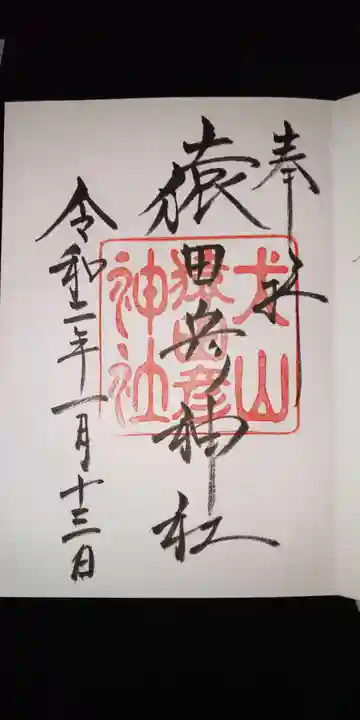 奉拝
猿田彦神社
犬山
猿田彦
神社
令和二年一月十三日